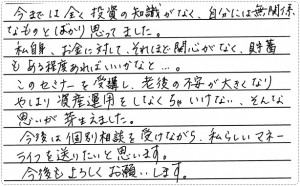 今までは全く投資の知識がなく、自分には無関係
なものとばかり思ってました。
私自身、お金に対して、それほど関心がなく、貯蓄
もある程度あればいいかなと…。
このセミナーを受講し、老後の不安が大きくなり
やはり資産運用をしなくちゃいけない、そんな
思いが芽生えました。
今後は個別相談を受けながら、私らしいマネー
ライフを送りたいと思います。
今後もよろしくお願いします。